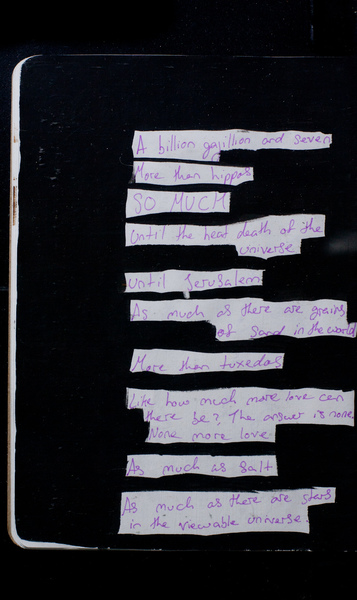 A billion gajillion and seven
More than hippos
SO MUCH
Until the heat death of the
universe
Until Jerusalem
As much as there are grains
of sand in the world
More than tuxedos
Like how much more love can
there be? The answer is none.
None more love
As much as salt
As much as there are stars
in the viewable universe.